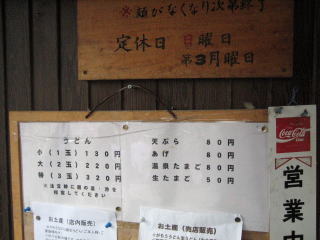 ※麺がなくなり次第終了
定休日 日曜日
第3月曜日
うどん
小(1玉)130円
大(2玉)220円
特(3玉)320円
※注文時に麺の温・冷を
指定してください
天ぷら 80円
あげ 80円
温泉たまご 80円
生たまご 50円
お土産(店内販売)
お土産(売店販売)
Coca-Cola
営業中